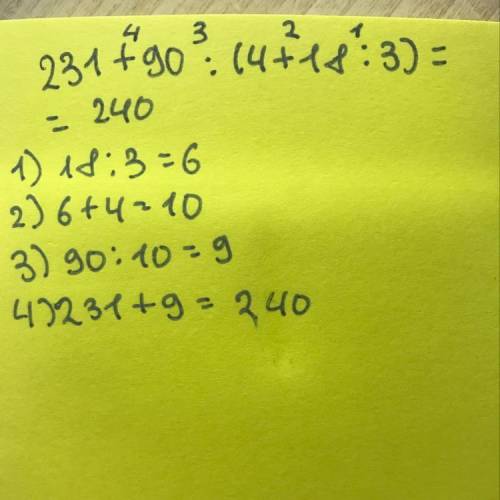 4 3 2 1
231+90:(4+18:3)=
= 240
1) 18:3=6
2) 6+4=10
3) 90:10=9
4) 231+9=240